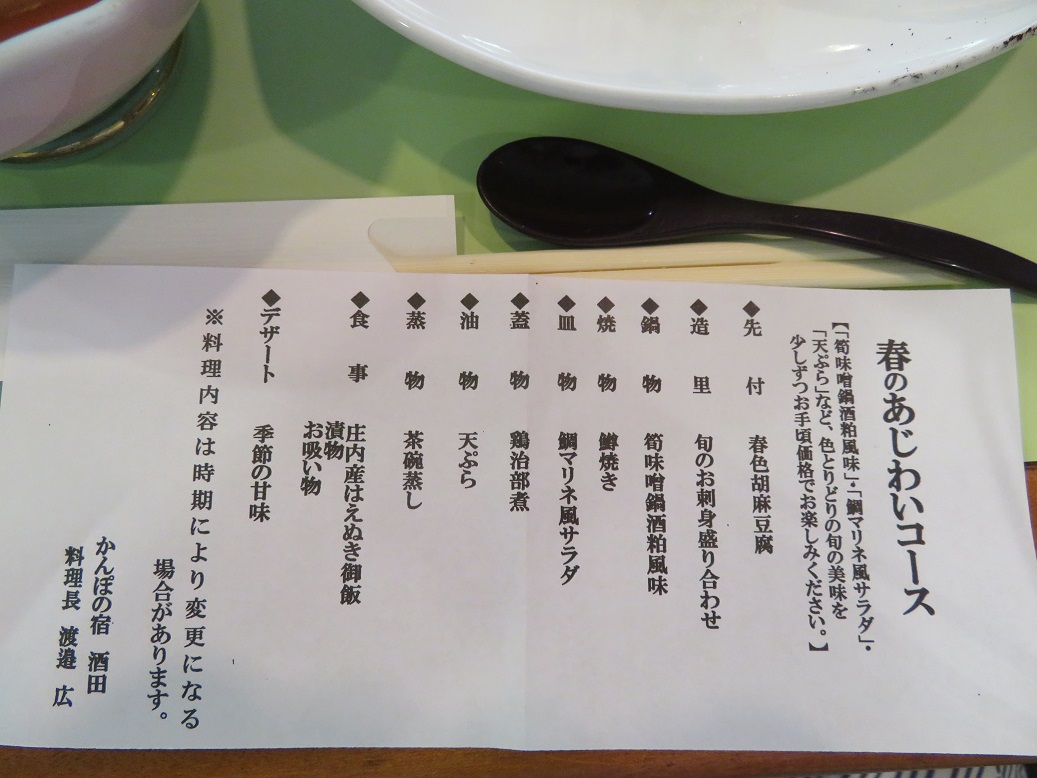 春のあじわいコース
【「筍味噌鍋酒粕風味」・「鯛マリネ風サラダ」・
「天ぷら」など、色とりどりの旬の美味を
少しずつお手頃価格でお楽しみください。】
◆先付 春色胡麻豆腐
◆造里 旬のお刺身盛り合わせ
◆鍋物 筍味噌鍋酒粕風味
◆焼物 鱒焼き
◆皿物 鯛マリネ風サラダ
◆蓋物 鶏治部煮
◆油物 天ぷら
◆蒸物 茶碗蒸し
◆食事 庄内産はえぬき御飯
漬物
お吸い物
◆デザート 季節の甘味
※料理内容は時期により変更になる
場合があります。
かんぽの宿 酒田
料理長 渡邉 広